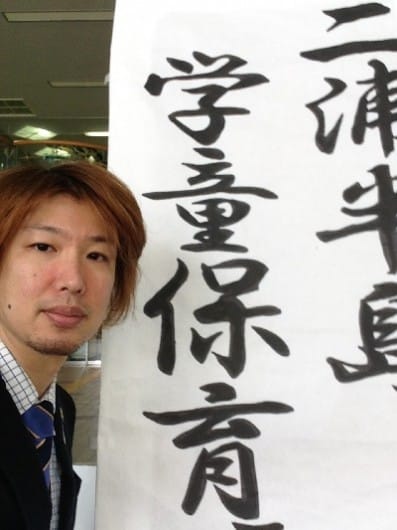 三浦半島
学童保育